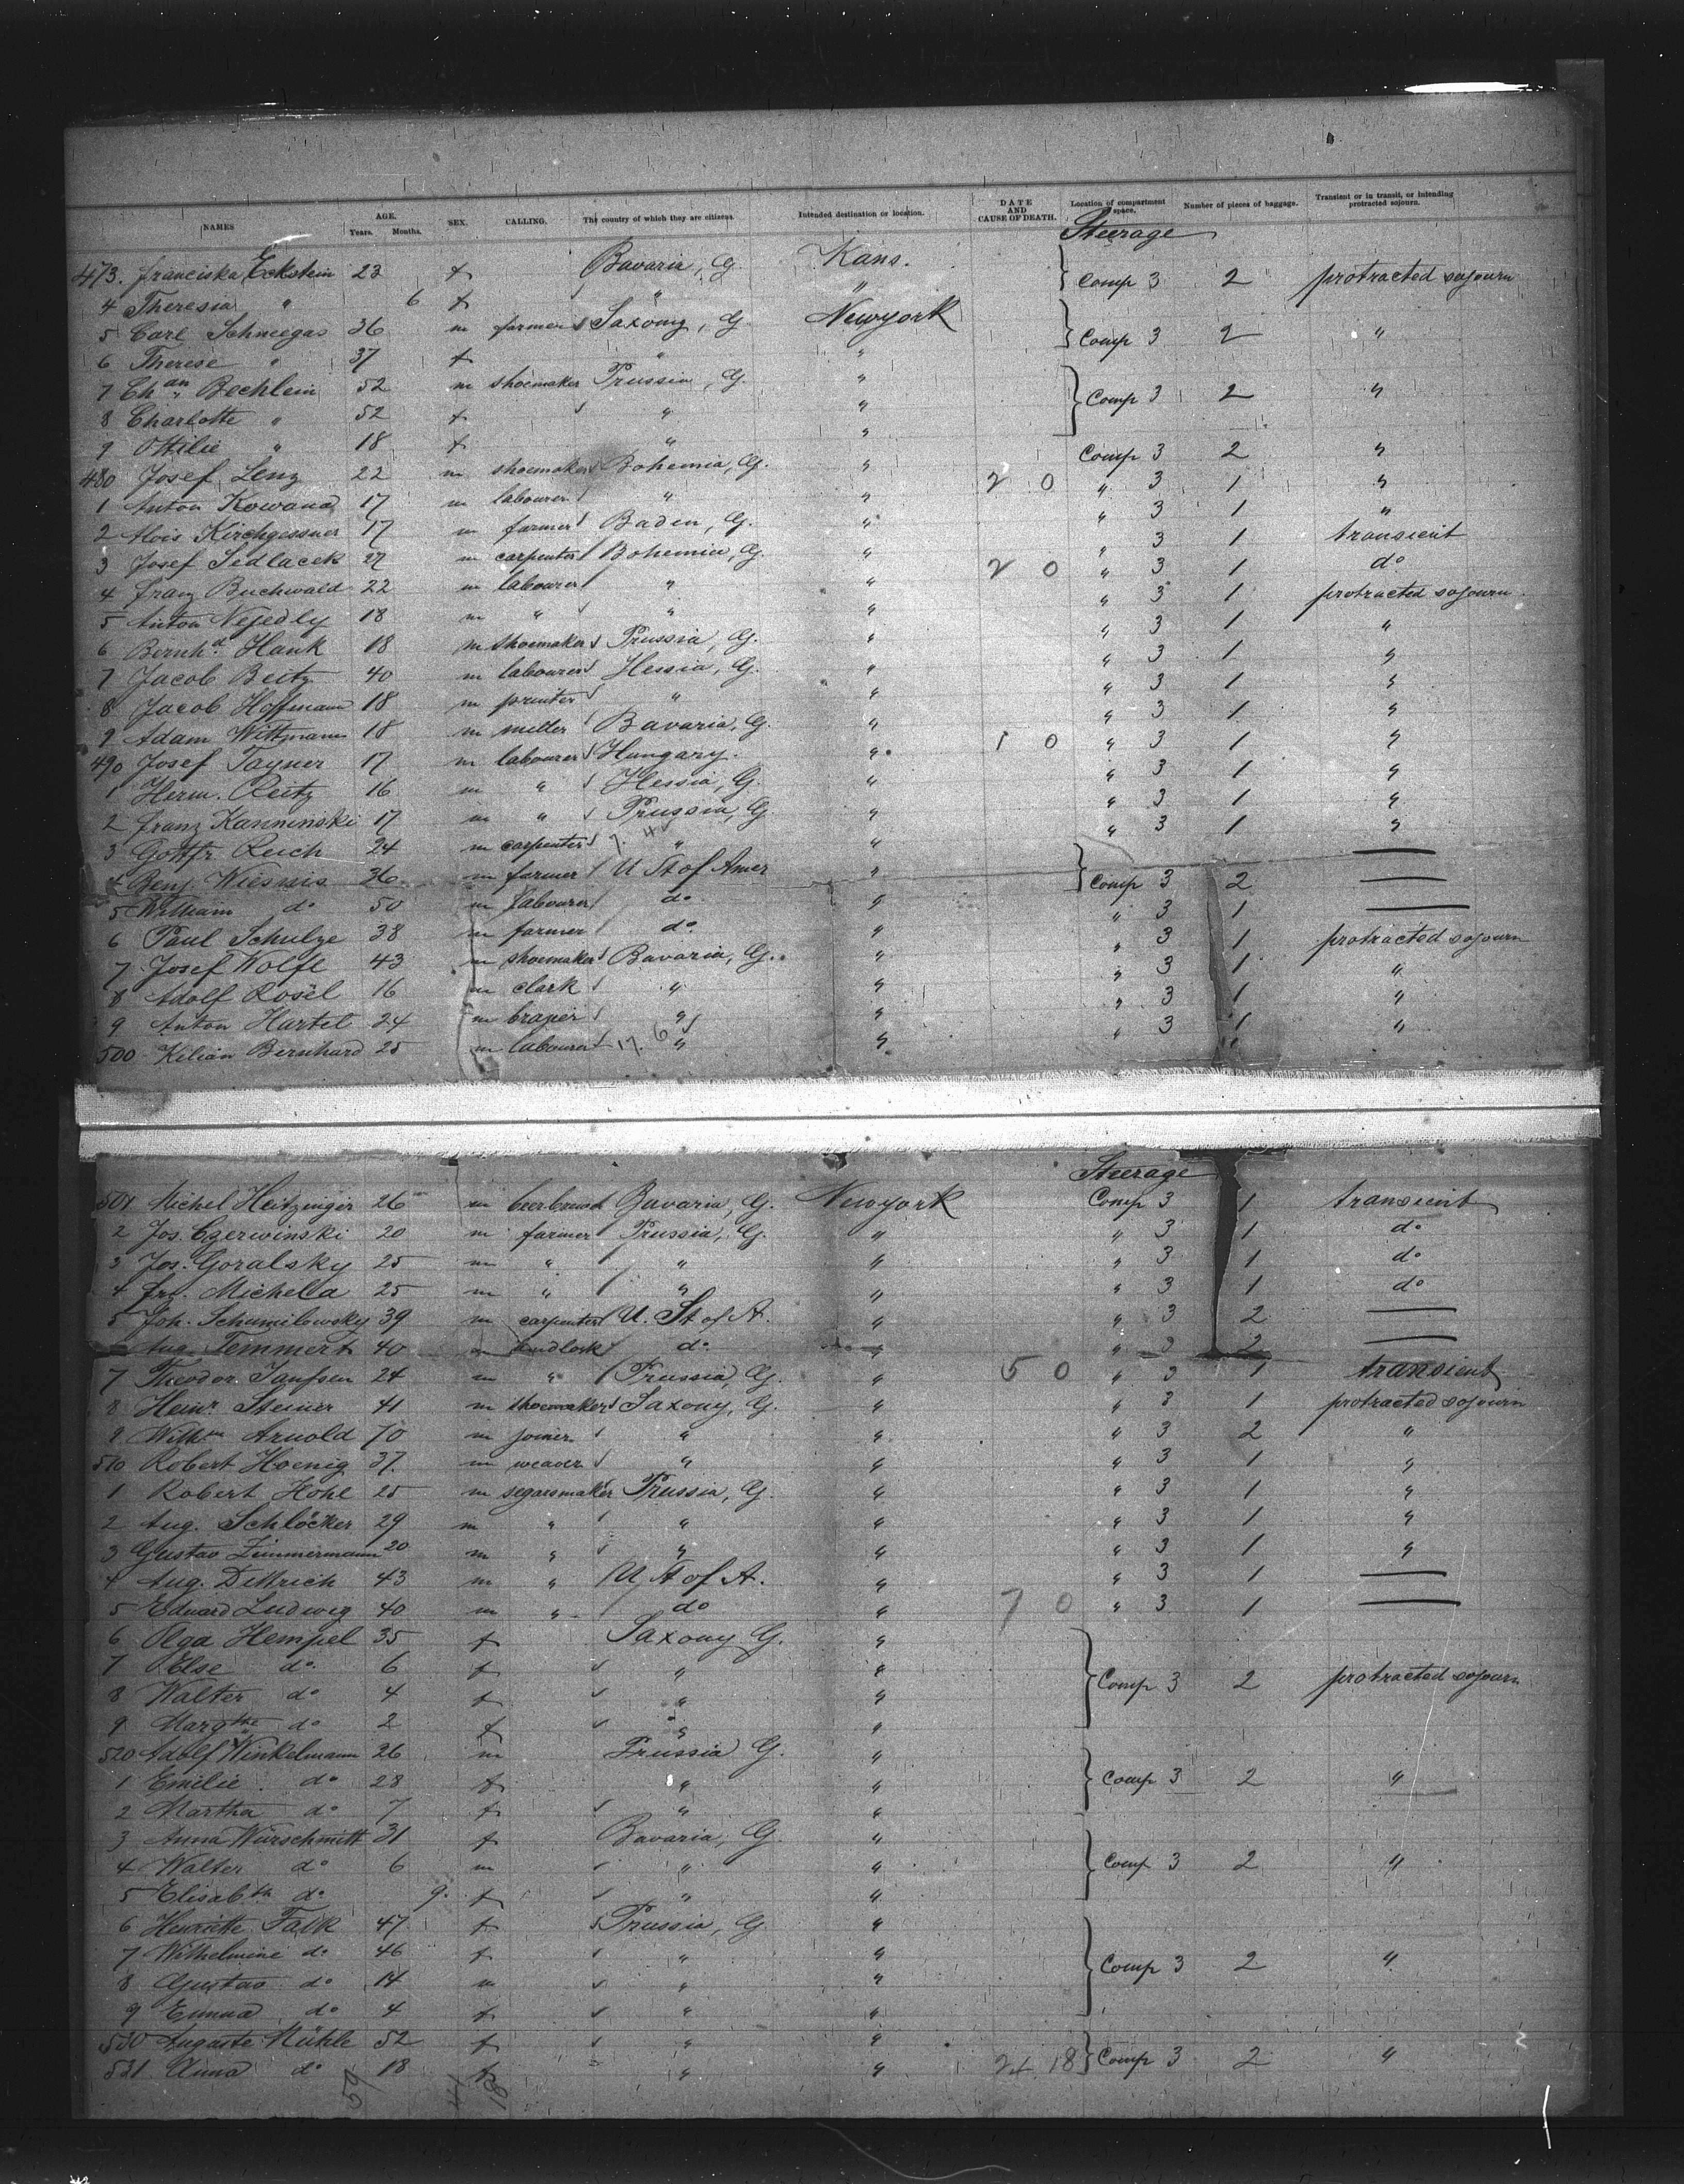 NAMES AGE. Years. Months. SEX. CALLING. The country of which they are citizens. Intended destination or location. DATE AND CAUSE OF DEATH. Location of compartment space. Number of pieces of baggage. Transient or in transit, or intending protracted sojourn.
Steerage
473. Franciska Eckstein 23 f Bavaria, G. Kans. Comp 3 2 protracted sojourn
4 Theresia " 6 f " "
5 Carl Schneegas 36 m farmer Saxony, G. Newyork Comp 3 2 "
6 Therese " 37 f " "
7 Chan Bechlein 52 m shoemaker Prussia, G. " Comp 3 2 "
8 Charlotte " 52 f " "
9 Ottilie " 18 f " "
480 Josef Lenz 22 m shoemaker Bohemia, G. " Comp 3 2 "
1 Anton Kowana 17 m labourer " " 2 0 " 3 1 "
2 Alois Kirchgessner 17 m farmer Baden, G. " " 3 1 "
3 Josef Sedlacek 27 m carpenter Bohemia, G. " " 3 1 transient
4 Franz Buchwald 22 m labourer " " 2 0 " 3 1 do
5 Anton Nejedly 18 m " " " " 3 1 protracted sojourn.
6 Bernhd. Hank 18 m shoemaker Prussia, G. " " 3 1 "
7 Jacob Beitz 40 m labourer Hessia, G. " " 3 1 "
8 Jacob Hoffmann 18 m printer " " " 3 1 "
9 Adam Wittmann 18 m miller Bavaria, G. " " 3 1 "
490 Josef Tayner 17 m labourer Hungary. " 1 0 " 3 1 "
1 Herm. Reitz 16 m " Hessia, G. " " 3 1 "
2 Franz Kanninski 17 m " Prussia, G. " " 3 1 "
3 Gottfr Reich 24 m carpenter " " " 3 1 "
4 Benj. Wiesnis 36 m farmer U St of Amer " Comp 3 2
5 William do 50 m labourer do " " 3 1
6 Paul Schulze 38 m farmer do " " 3 1
7 Josef Wolfl 43 m shoemaker Bavaria, G. " " 3 1 protracted sojourn
8 Adolf Rosel 16 m clark " " " 3 1 "
9 Anton Hartel 24 m brazier " " " 3 1 "
500 Kilian Bernhard 25 m labourer 17. 6 " " " 3 1 "
Steerage
501 Michel Heitzinger 26 m Bavaria, G. Newyork Comp 3 1 transient
2 Jos. Czerwinski 20 m farmer Prussia, G. " " 3 1 do
3 Jos. Goralsky 25 m " " " " 3 1 do
4 Fr. Michella 25 m " " " " 3 1 do
5 Joh. Schumilowsky 39 m carpenter U. St of A. " " 3 2
Aug. Temmert 40 m do " " 3 2
7 Theodor. Janssen 24 m " Prussia, G. " 5 0 " 3 1 transient
8 Heinr. Steiner 41 m shoemaker Saxony, G. " " 3 1 protracted sojourn
9 Wilhm Arnold 70 m joiner " " " 3 2 "
510 Robert Hoenig 37. m weaver " " " 3 1 "
1 Robert Hohl 25 m segarsmaker Prussia, G. " " 3 1 "
2 Aug. Schlöcker 29 m " " " " 3 1 "
3 Gustav Zimmermann 20 m " " " " 3 1 "
4 Aug. Dittrich 43 m " U St of A. " " 3 1
5 Eduard Ludwig 40 m " do " 7 0 " 3 1
6 Olga Hempel 35 f Saxony G. "
7 Else do. 6 f " " Comp 3 2 protracted sojourn
8 Walter do 4 f " "
9 Margthe do 2 f " "
520 Adolf Winkelmann 26 m Prussia G. "
1 Emilie do 28 f " " Comp 3 2 "
2 Martha do 7 f " "
3 Anna Würschmitt 31 f Bavaria, G. "
4 Walter do 6 m " " Comp 3 2 "
5 Elisabth do 9. f " "
6 Henriette Falk 47 f Prussia, G "
7 Wilhelmine do 46 f " " Comp 3 2 "
8 Gustav do 14 m " "
9 Emma do 4 f " "
530 Auguste Mühle 52 f " "
531 Anna do 18 f " " 24 18 Comp 3 2 "
59 41 18